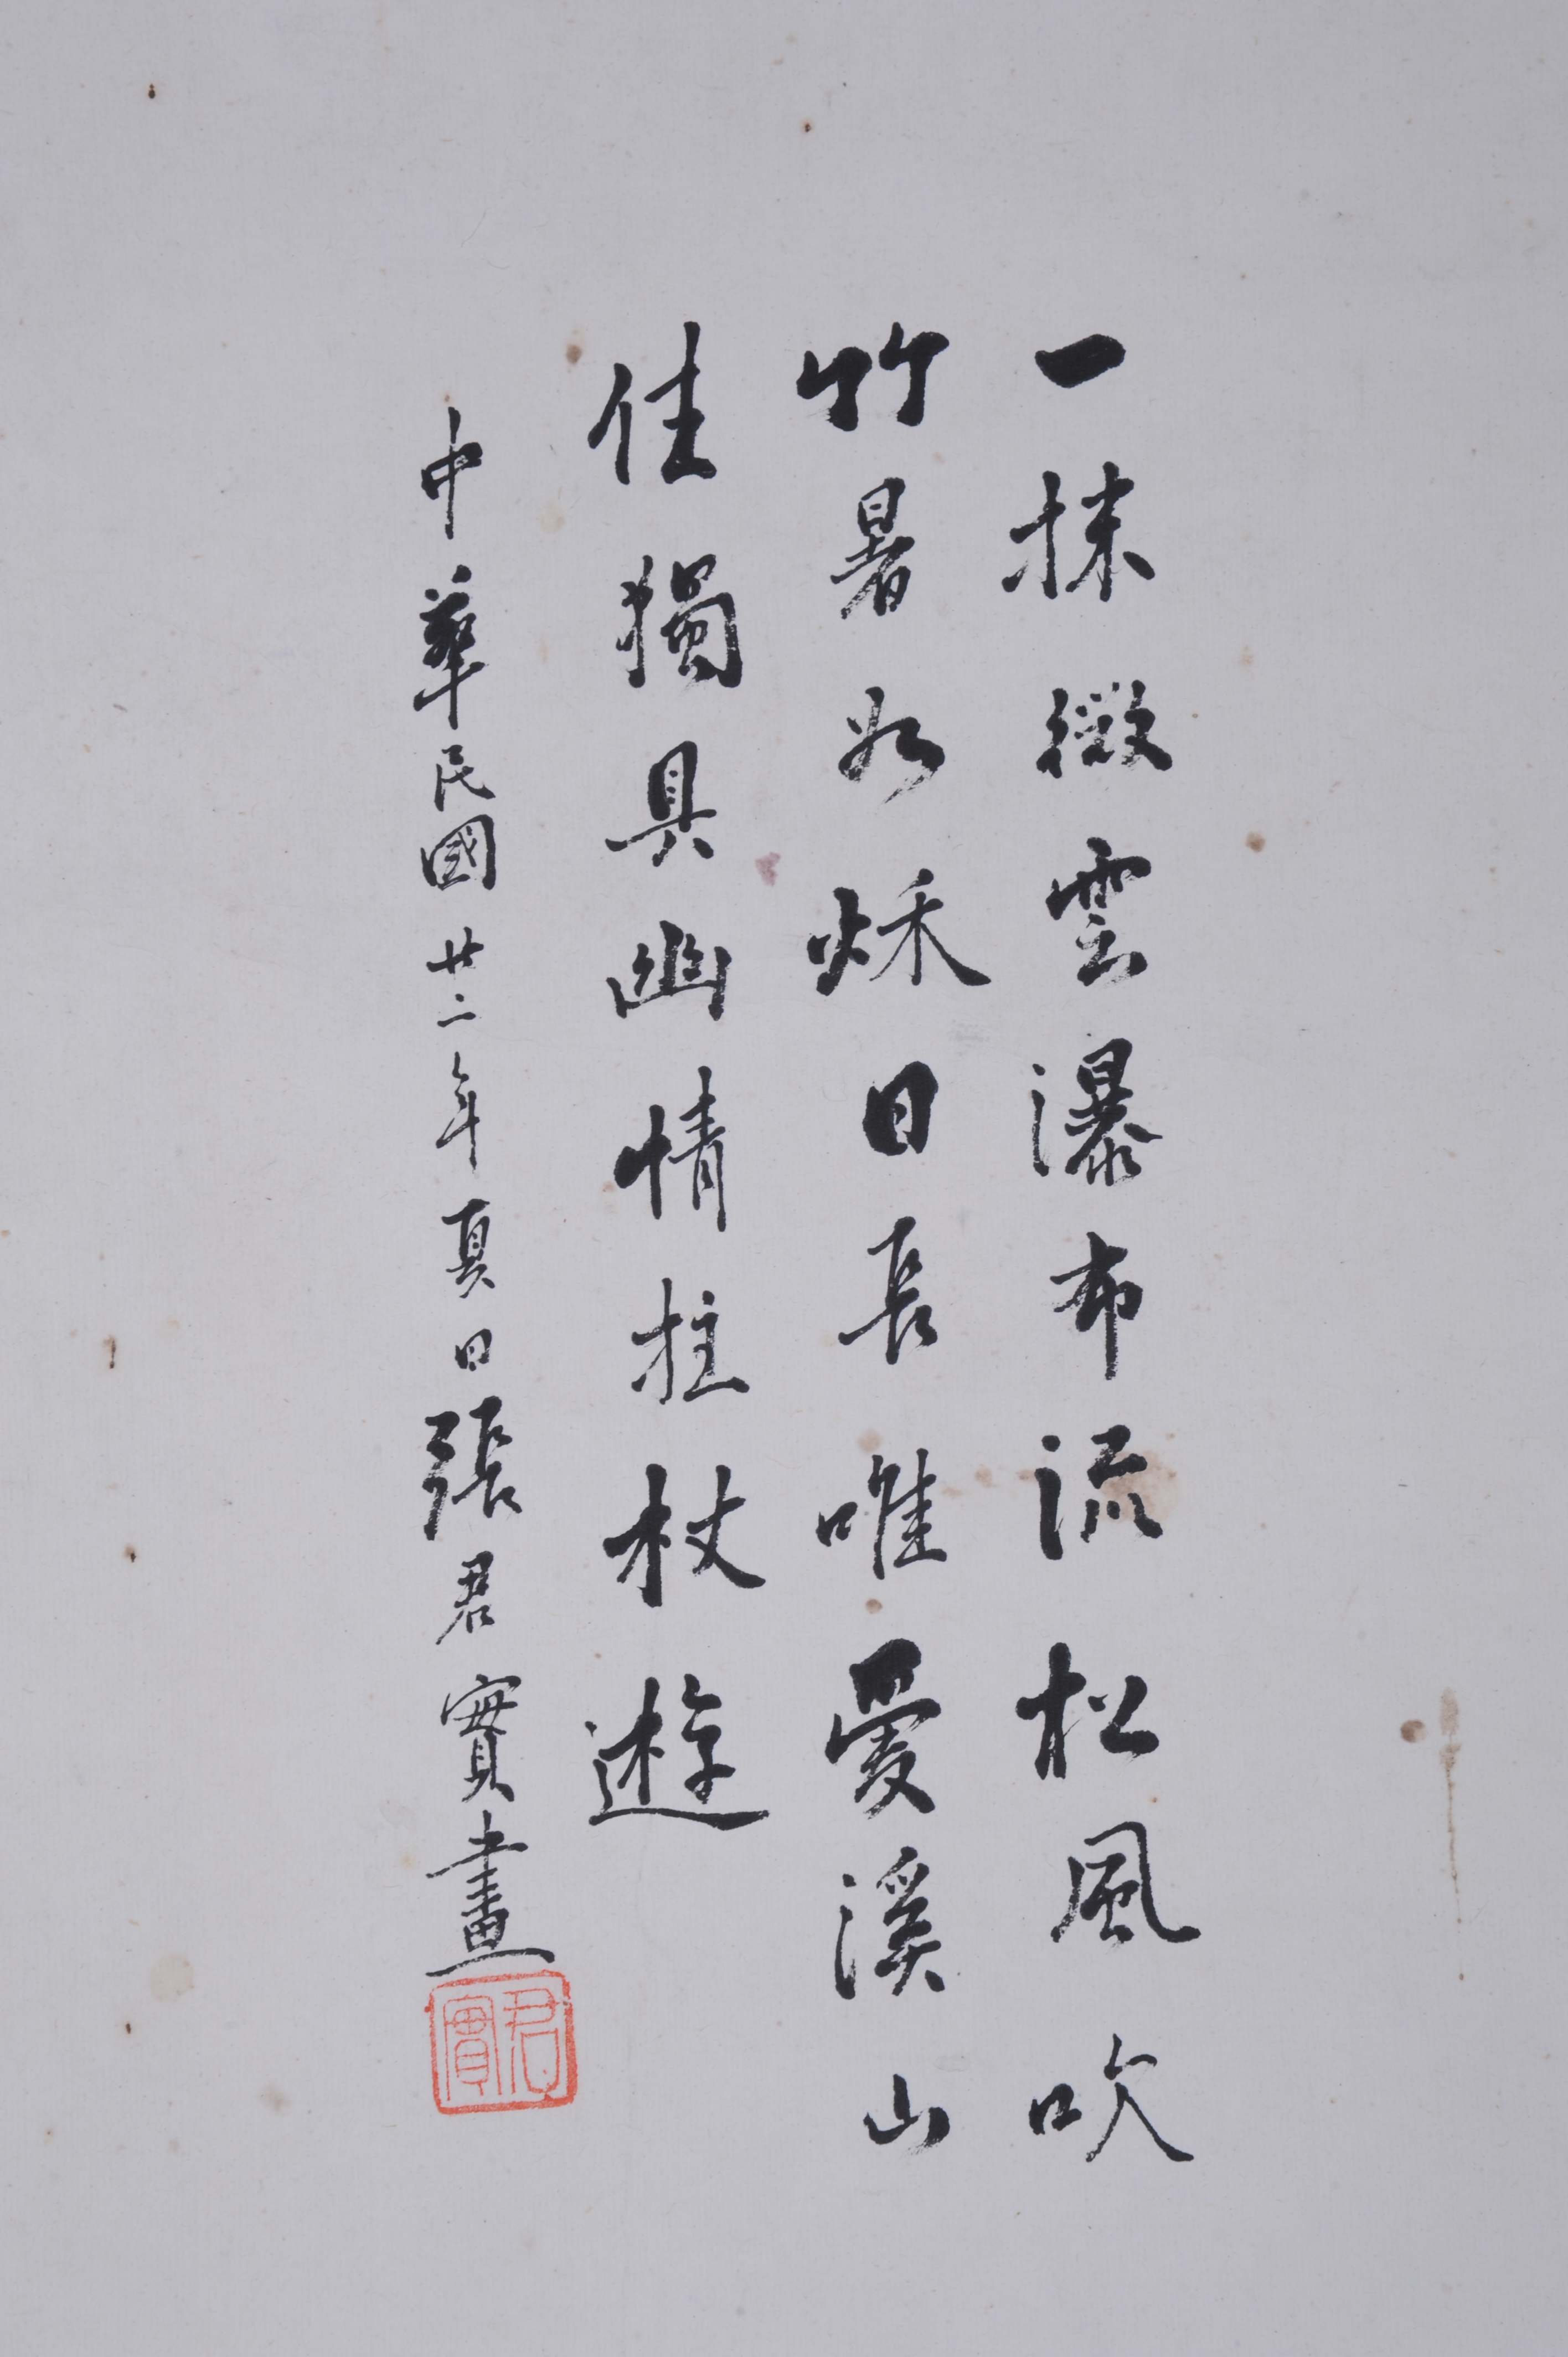 一抹微雲瀑布流松風吹
竹暑如秌日長唯愛溪山
佳獨具幽情拄杖遊
中華民國廿二年夏日張君實畫
君實